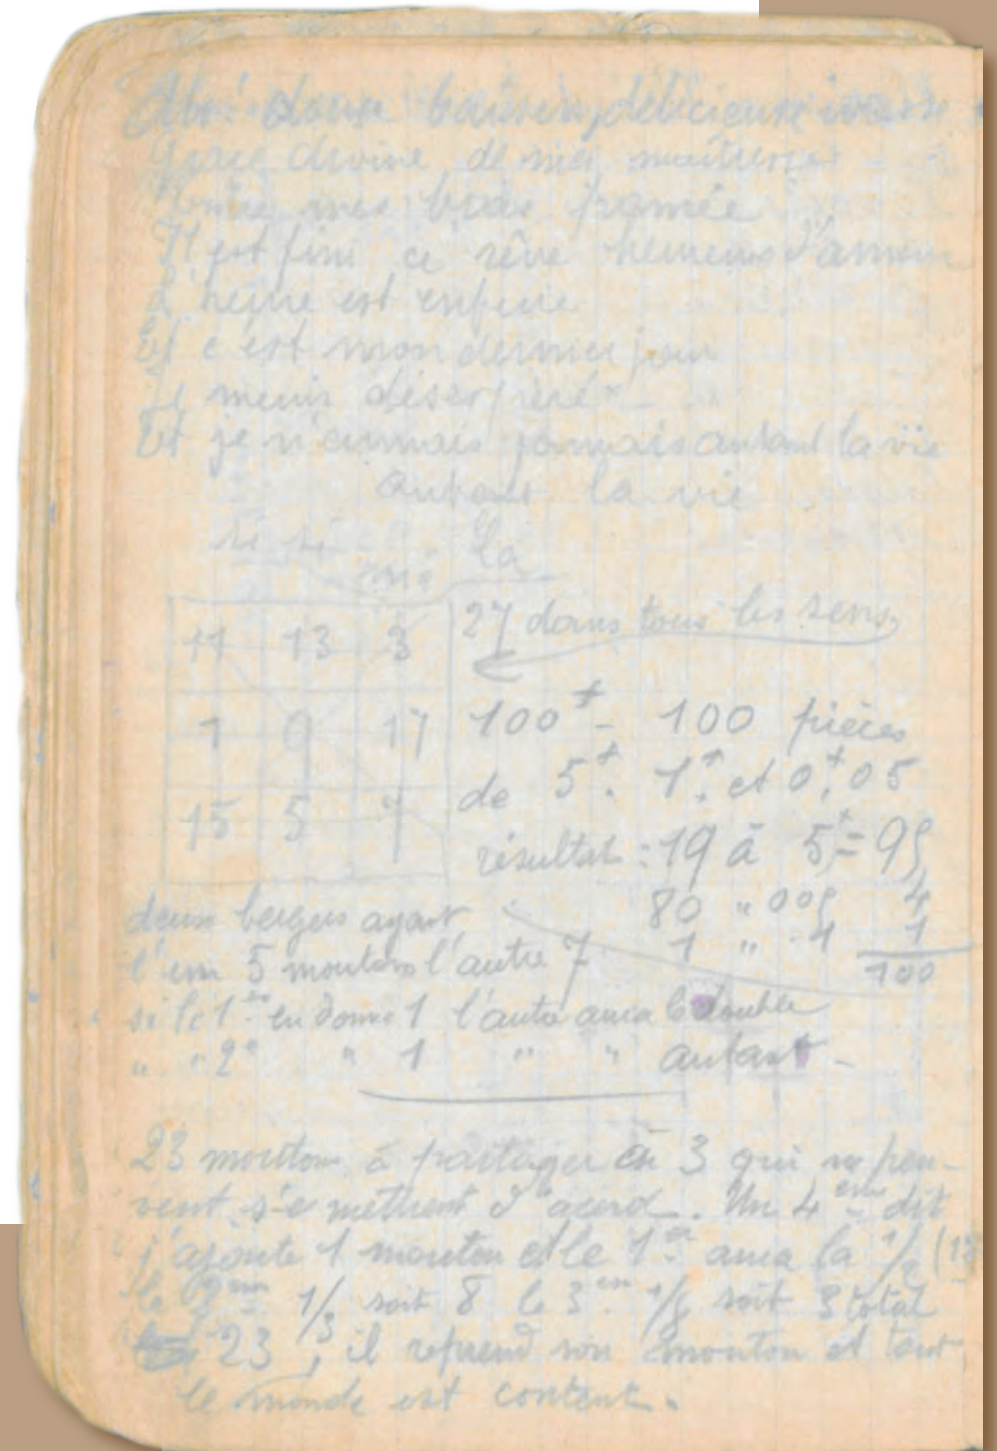 Ah! doux baisers, délicieuse ivresse
Grace divine de ma maîtresse
mes bras pamée
Il est fini ce rêve hereux d'amour
L'heure est enfuie
Et c'est mon dernier jour
Je meurs déserpéré
Et je n'aimais jamais autant la vie
autant la vie
si si la
mi
27 dans tous les sens
11 13 3
1 9 17
15 5 7
100 f - 100 pièces
de 5 f. 1 f. et 0 f,05
résultat : 19 à 5 f = 95
80 " 005 4
1 " 1 1
100
deux bergers ayant
l'un 5 moutons l'autre 7
si le 1er en donne 1 l'autre aura le double
" " 2e " 1 " " autant -
23 moutons à partager à 3 qui ne peu-
vent s'e mettrent d'acord. Un 4em dit
j'ajoute 1 mouton et le 1er aura la 1/2 (12
le 2em 1/3 soit 8 le 3em 1/8 soit 3 total
23, il reprend son mouton et tout
le monde est content.